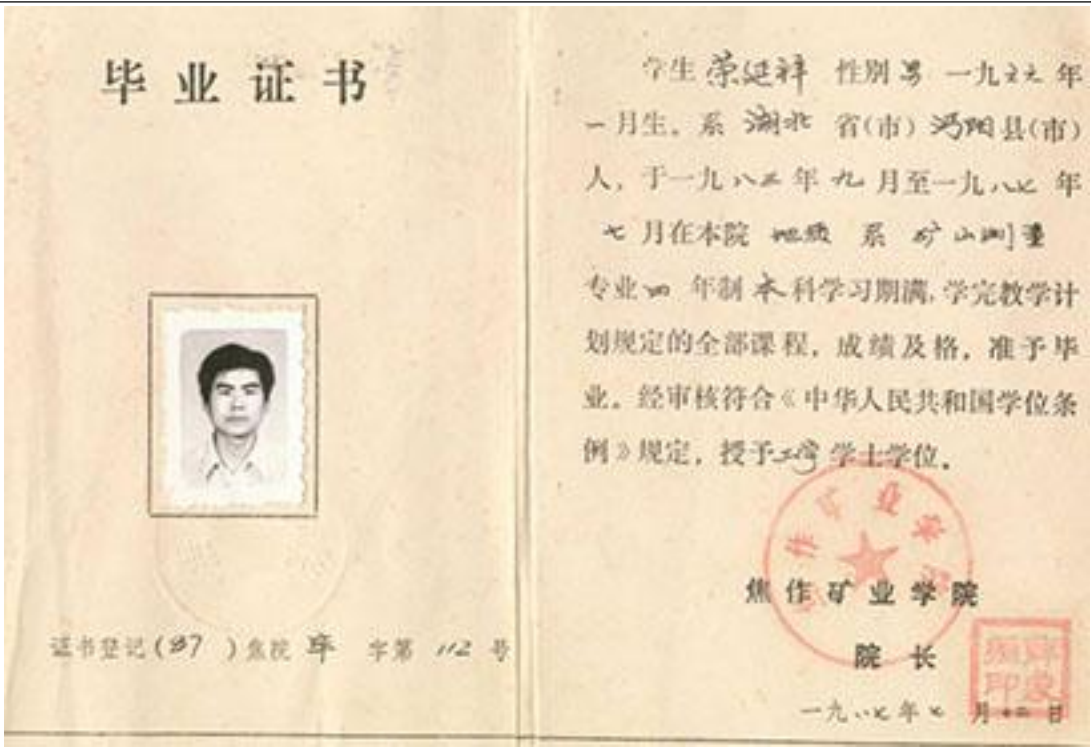 毕业证书
证书登记(87)焦院 毕 字第 112 号
学生 荣延祥 性别 男 一九 年
一月生,系 湖北 省(市) 沔阳县(市)
人,于一九八三年 九 月至一九八七 年
七 月在本院 地质 系 矿山测量
专业 四 年制 本 科学习期满,学完教学计
划规定的全部课程,成绩及格,准予毕
业。经审核符合《中华人民共和国学位条
例》规定,授予工学 学士学位。
焦作矿业学院
焦作矿业学院
院 长
一九八七年七 月十二日